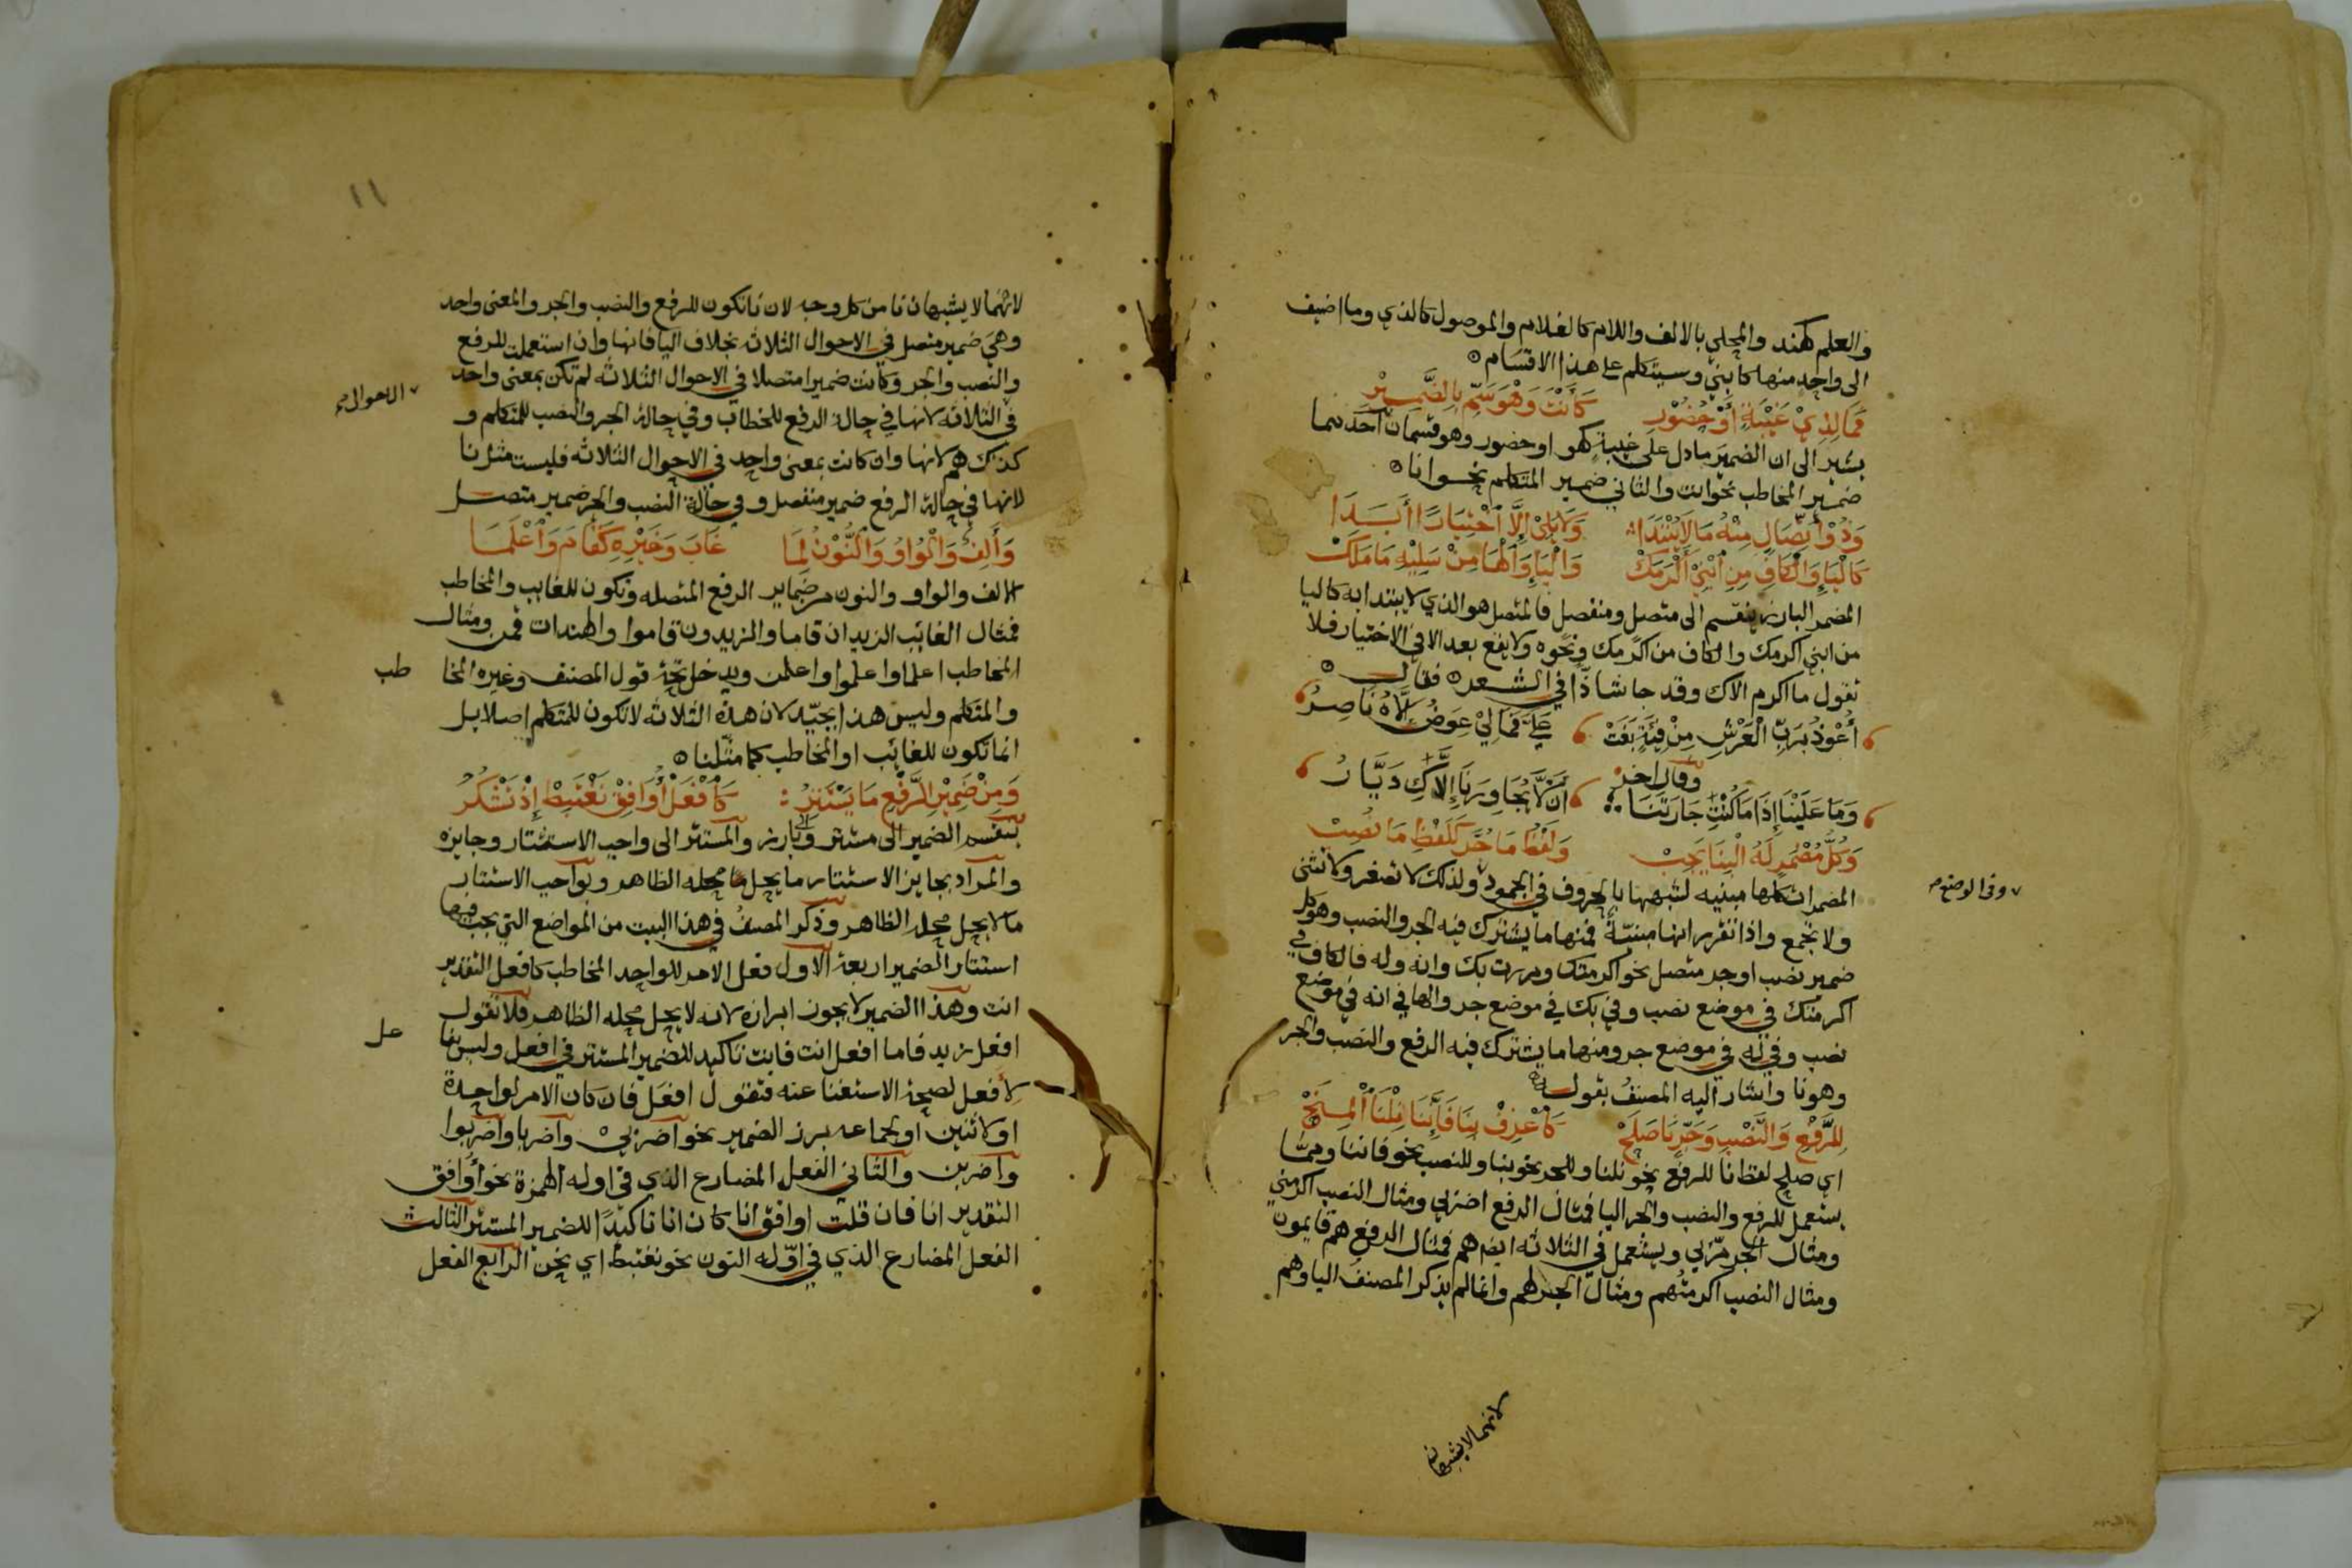 والعلم كهند والمحلي بالالف واللام كالغلام والموصول كالذي وما اضيف
الى واحد منها كابني وسيتكلم على هذا الاقسام
فَمَا لِذِيْ غَيْبَةٍ أَوْ حُضُوْرِ كَأَنْتَ وَهْوَ سَمِّ بِالضَّمِيْرِ
يشير الى ان الضمير ما دل على غيبة كهو او حضور وهو قسمان احدهما
ضمير المخاطب نحو انت والثاني ضمير المتكلم نحو انا
وَذُوْ اتِّصَالٍ مِنْهُ مَا لَا يُبْتَدَا وَلَا يَلِيْ إِلَّا اخْتِيَارًا أَبَدَا
كَالْيَاءِ وَالْكَافِ مِنِ ابْنِيْ أَكْرَمَكْ وَالْيَاءِ وَالْهَا مِنْ سَلِيْهِ مَا مَلَكْ
المضمر البارز ينقسم الى متصل ومنفصل فالمتصل هو الذي لا يبتدا به كاليا
من ابني اكرمك والكاف من اكرمك ونحوه ولا يقع بعد الا في الاختيار فلا
تقول ما اكرم الاك وقد جا شاذا في الشعر فقال
أَعُوْذُ بِرَبِّ الْعَرْشِ مِنْ فِئَةٍ بَغَتْ عَلَيَّ فَمَا لِيْ عِوَضُ إِلَّاهُ نَاصِرُ
وقال اخر
وَمَا عَلَيْنَا إِذَا مَا كُنْتِ جَارَتَنَا أَنْ لَّا يُجَاوِرَنَا إِلَّاكِ دَيَّارُ
وَكُلُّ مُضْمَرٍ لَهُ الْبِنَا يَجِبْ وَلَفْظُ مَا جُرَّ كَلَفْظِ مَا نُصِبْ
المضمرات كلها مبنيه لشبهها بالحروف في الجمود ولذلك لا تصغر ولا تثنى
٧ وفي الوضع
ولا تجمع واذا تقرر انها مبنيّة فمنها ما يشترك فيه الجر والنصب وهو كل
ضمير نصب او جر متصل نحو اكرمتك ومررت بك وانه وله فالكاف في
اكرمتك في موضع نصب وفي بك في موضع جر والها في انه في موضع
نصب وفي له في موضع جر ومنها ما يشترك فيه الرفع والنصب والجر
وهو نا واشار اليه المصنف بقوله
لِلرَّفْعِ وَالنَّصْبِ وَجَرٍّ نَا صَلَحْ كَاعْرِفْ بِنَا فَإِنَّنَا نِلْنَا الْمِنَحْ
اي صلح لفظ نا للرفع نحو نلنا وللجر نحو بنا وللنصب نحو فاننا ومما
يستعمل للرفع والنصب والجر اليا فمثال الرفع اضربي ومثال النصب اكرمني
ومثال الجر مرّ بي ويستعمل في الثلاثه ايضا هم فمثال الرفع هم قايمون
ومثال النصب اكرمتهم ومثال الجر لهم وانما لم يذكر المصنف اليا وهم
لانهما لا يشبهان
١١
لانهما لا يشبهان نا من كل وجه لان نا تكون للرفع والنصب والجر والمعنى واحد
وهي ضمير متصل في الاحوال الثلاث بخلاف اليا فانها وان استعملت للرفع
والنصب والجر وكانت ضميرا متصلا في الاحوال الثلاثه لم تكن بمعنى واحد
٧ الاحوال
في الثلاثه لانها في حالة الرفع للخطاب وفي حالة الجر والنصب للمتكلم و
كذلك هم لانها وان كانت بمعنى واحد في الاحوال الثلاثه فليست مثل نا
لانها في حالة الرفع ضمير منفصل وفي حالة النصب والجر ضمير متصل
وَأَلِفٌ وَالْوَاوُ وَالنُّوْنُ لِمَا غَابَ وَغَيْرِهِ كَقَامَ وَاعْلَمَا
الالف والواو والنون من ضماير الرفع المتصله وتكون للغايب والمخاطب
فمثال الغائب الزيدان قاما والزيدون قاموا والهندات قمن ومثال
المخاطب اعلما واعلموا واعلمن ويدخل تحت قول المصنف وغيره المخا
طب
والمتكلم وليس هذا بجيّد لان هذه الثلاثه لا تكون للمتكلم اصلا بل
انما تكون للغائب او المخاطب كما مثّلنا
وَمِنْ ضَمِيْرِ الرَّفْعِ مَا يَسْتَتِرُ كَافْعَلْ أُوَافِقْ نَغْتَبِطْ إِذْ تَشْكُرُ
ينقسم الضمير الى مستتر وبارز والمستتر الى واجب الاستتار وجايزه
والمراد بجايز الاستتار ما يحل محله الظاهر وبواجب الاستتار
ما لا يحل محله الظاهر وذكر المصنف في هذا البيت من المواضع التي يجب فيها
استتار الضمير اربعة الاول فعل الامر للواحد المخاطب كافعل التقدير
انت وهذا الضمير لا يجوز ابرازه لانه لا يحل محله الظاهر فلا تقول
افعل زيد فاما افعل انت فانت تاكيد للضمير المستتر في افعل وليس بفا
عل
لافعل لصحة الاستغنا عنه فتقول افعل فان كان الامر لواحدة
او لاثنين او لجماعه برز الضمير نحو اضربيْ واضربا واضربوا
واضربن والثاني الفعل المضارع الذي في اوله الهمزة نحو أوافق
التقدير انا فان قلت اوافق انا كان انا تاكيدًا للضمير المستتر الثالث
الفعل المضارع الذي في اوّله النون نحو نغتبط اي نحن الرابع الفعل